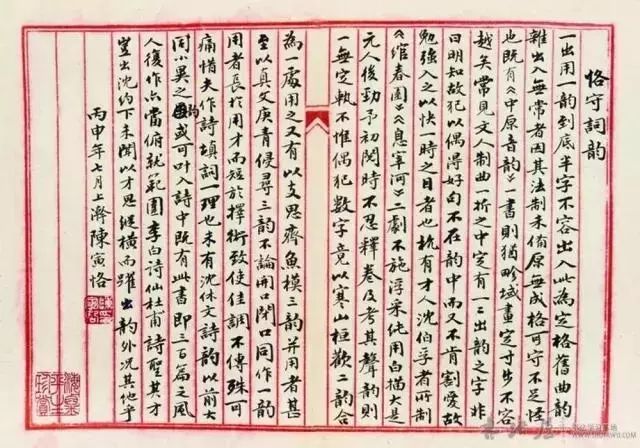 恪守詞韵
一出用一韵到底半字不容出入此為定格舊曲韵
雜出入無常者因其法制未備原無成格可守不足怪
也既有《中原音韵》一書則猶畛域畫定寸步不容
越矣常見文人制曲一折之中定有一二出韵之字非
曰明知故犯以偶得好句不在韵中而又不肯割愛故
勉強入之以快一時之目者也杭有才人沈伯孚者所制
《綰春園》《息宰河》二劇不施浮采純用白描大是
元人後勁予初閱時不忍釋卷及考其聲韵則
一無定軌不惟偶犯數字竟以寒山桓歡二韵合
為一處用之又有以支思齊魚模三韵并用者甚
至以真文庚青侵尋三韵不論開口閉口同作一韵
用者長於用才而短於擇術致使佳調不傳殊可
痛惜夫作詩填詞一理也未有沈休文詩韵以前大
同小異之韵或可叶入詩中既有此書即三百篇之風
人復作亦當俯就範圍李白詩仙杜甫詩聖其才
豈出沈約下未聞以才思縱橫而躍出韵外況其他乎
丙申年七月上澣陳寅恪
WWW.DUWU.COM